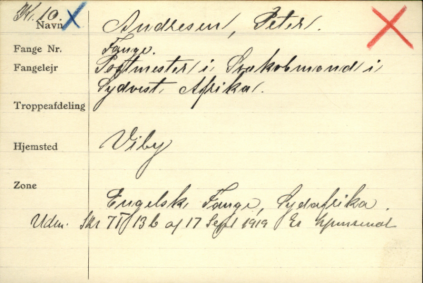 Kl. 10.
Navn Andresen, Peter.
Fange Nr. Fange.
Fangelejr Postmester i Svakobmond i
Sydvest Afrika.
Troppeafdeling
Hjemsted Viby
Zone
Engelsk Fange, Sydafrika.
Uden. Skr 71/136 af 17 Sept 1919 Er hjemsendt